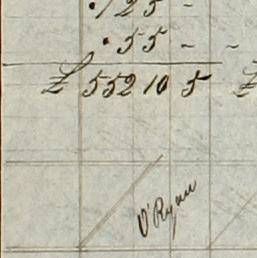 .125 -
.55 - -
£ 552 10 5 £
O'Ryan